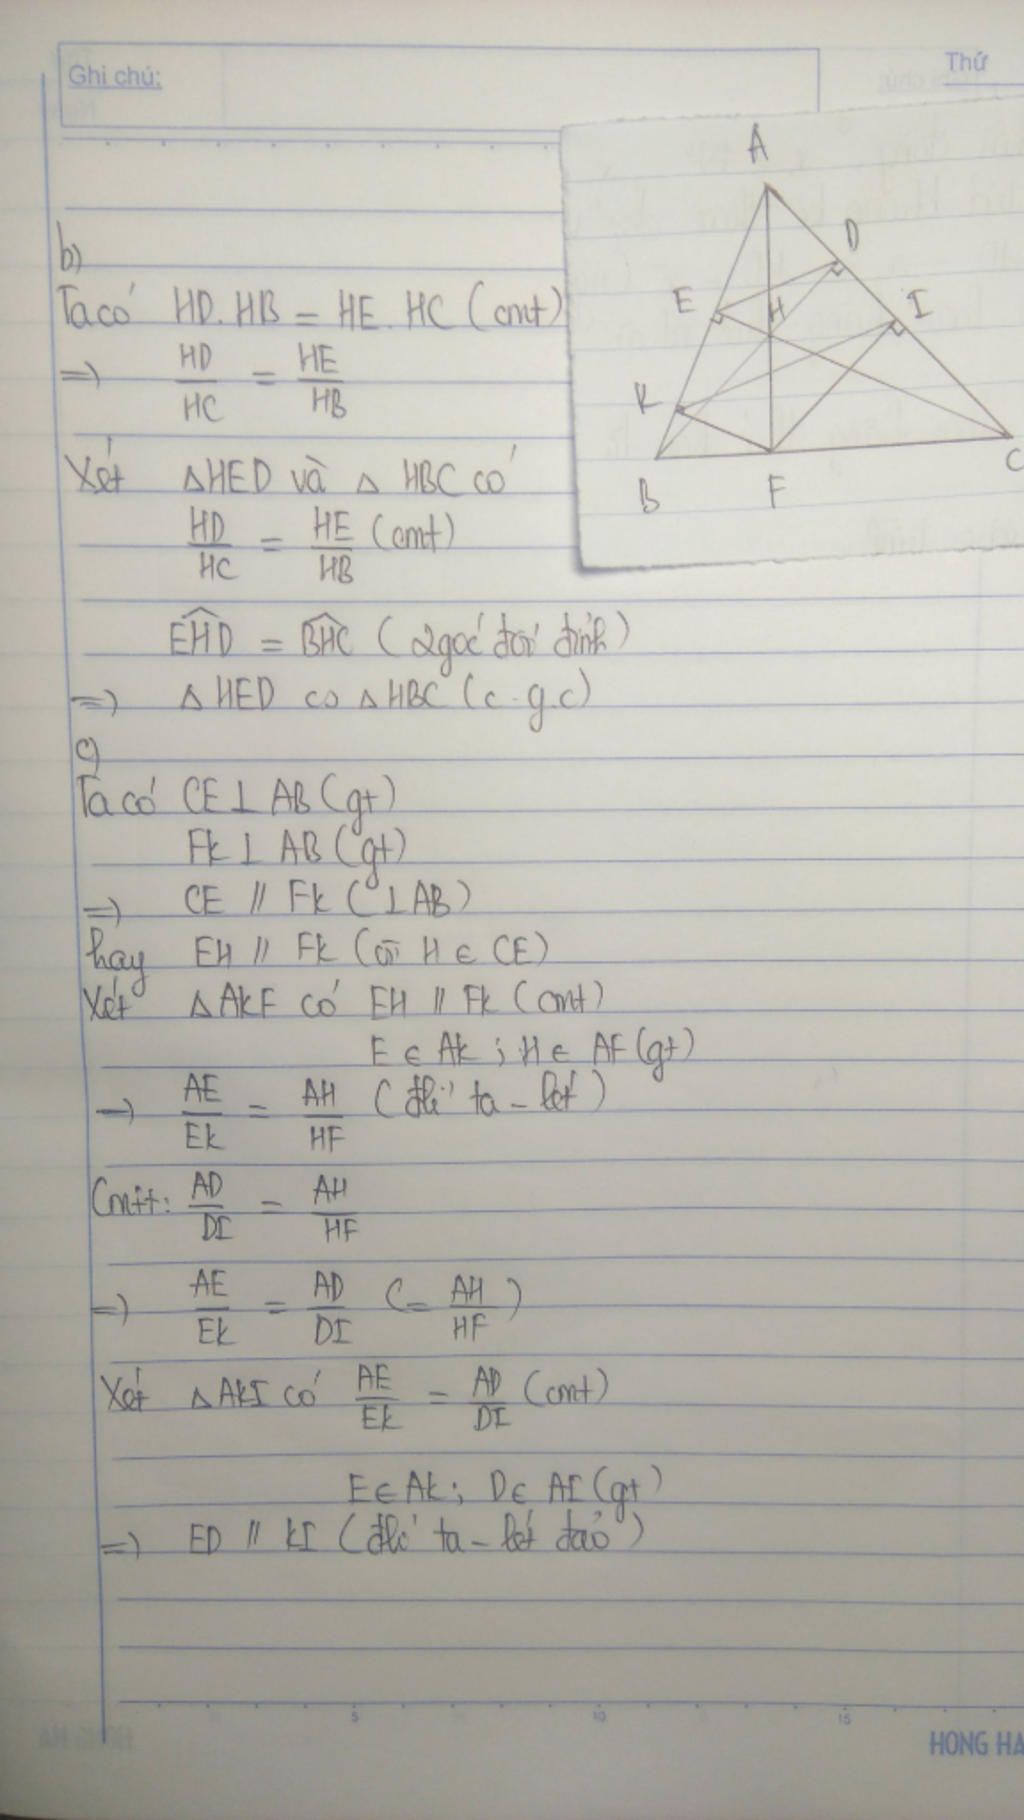 Ghi chú:
Thứ
A
D
E
H
I
K
B
F
C
b)
Ta có HD.HB = HE.HC (cmt)
=> HD/HC = HE/HB
Xét ΔHED và Δ HBC có
HD/HC = HE/HB (cmt)
EHD = BHC (2 góc đối đỉnh)
=> ΔHED ∽ ΔHBC (c.g.c)
c)
Ta có CE ⊥ AB (gt)
FK ⊥ AB (gt)
=> CE // FK (⊥AB)
hay EH // FK (vì H ∈ CE)
Xét ΔAKF có EH // FK (cmt)
E ∈ AK ; H ∈ AF (gt)
=> AE/EK = AH/HF (đlí ta-lét)
Cmtt: AD/DI = AH/HF
=> AE/EK = AD/DI (= AH/HF)
Xét ΔAKI có AE/EK = AD/DI (cmt)
E ∈ AK ; D ∈ AI (gt)
=> ED // KI (đlí ta-lét đảo)
5 10 15
HONG HA